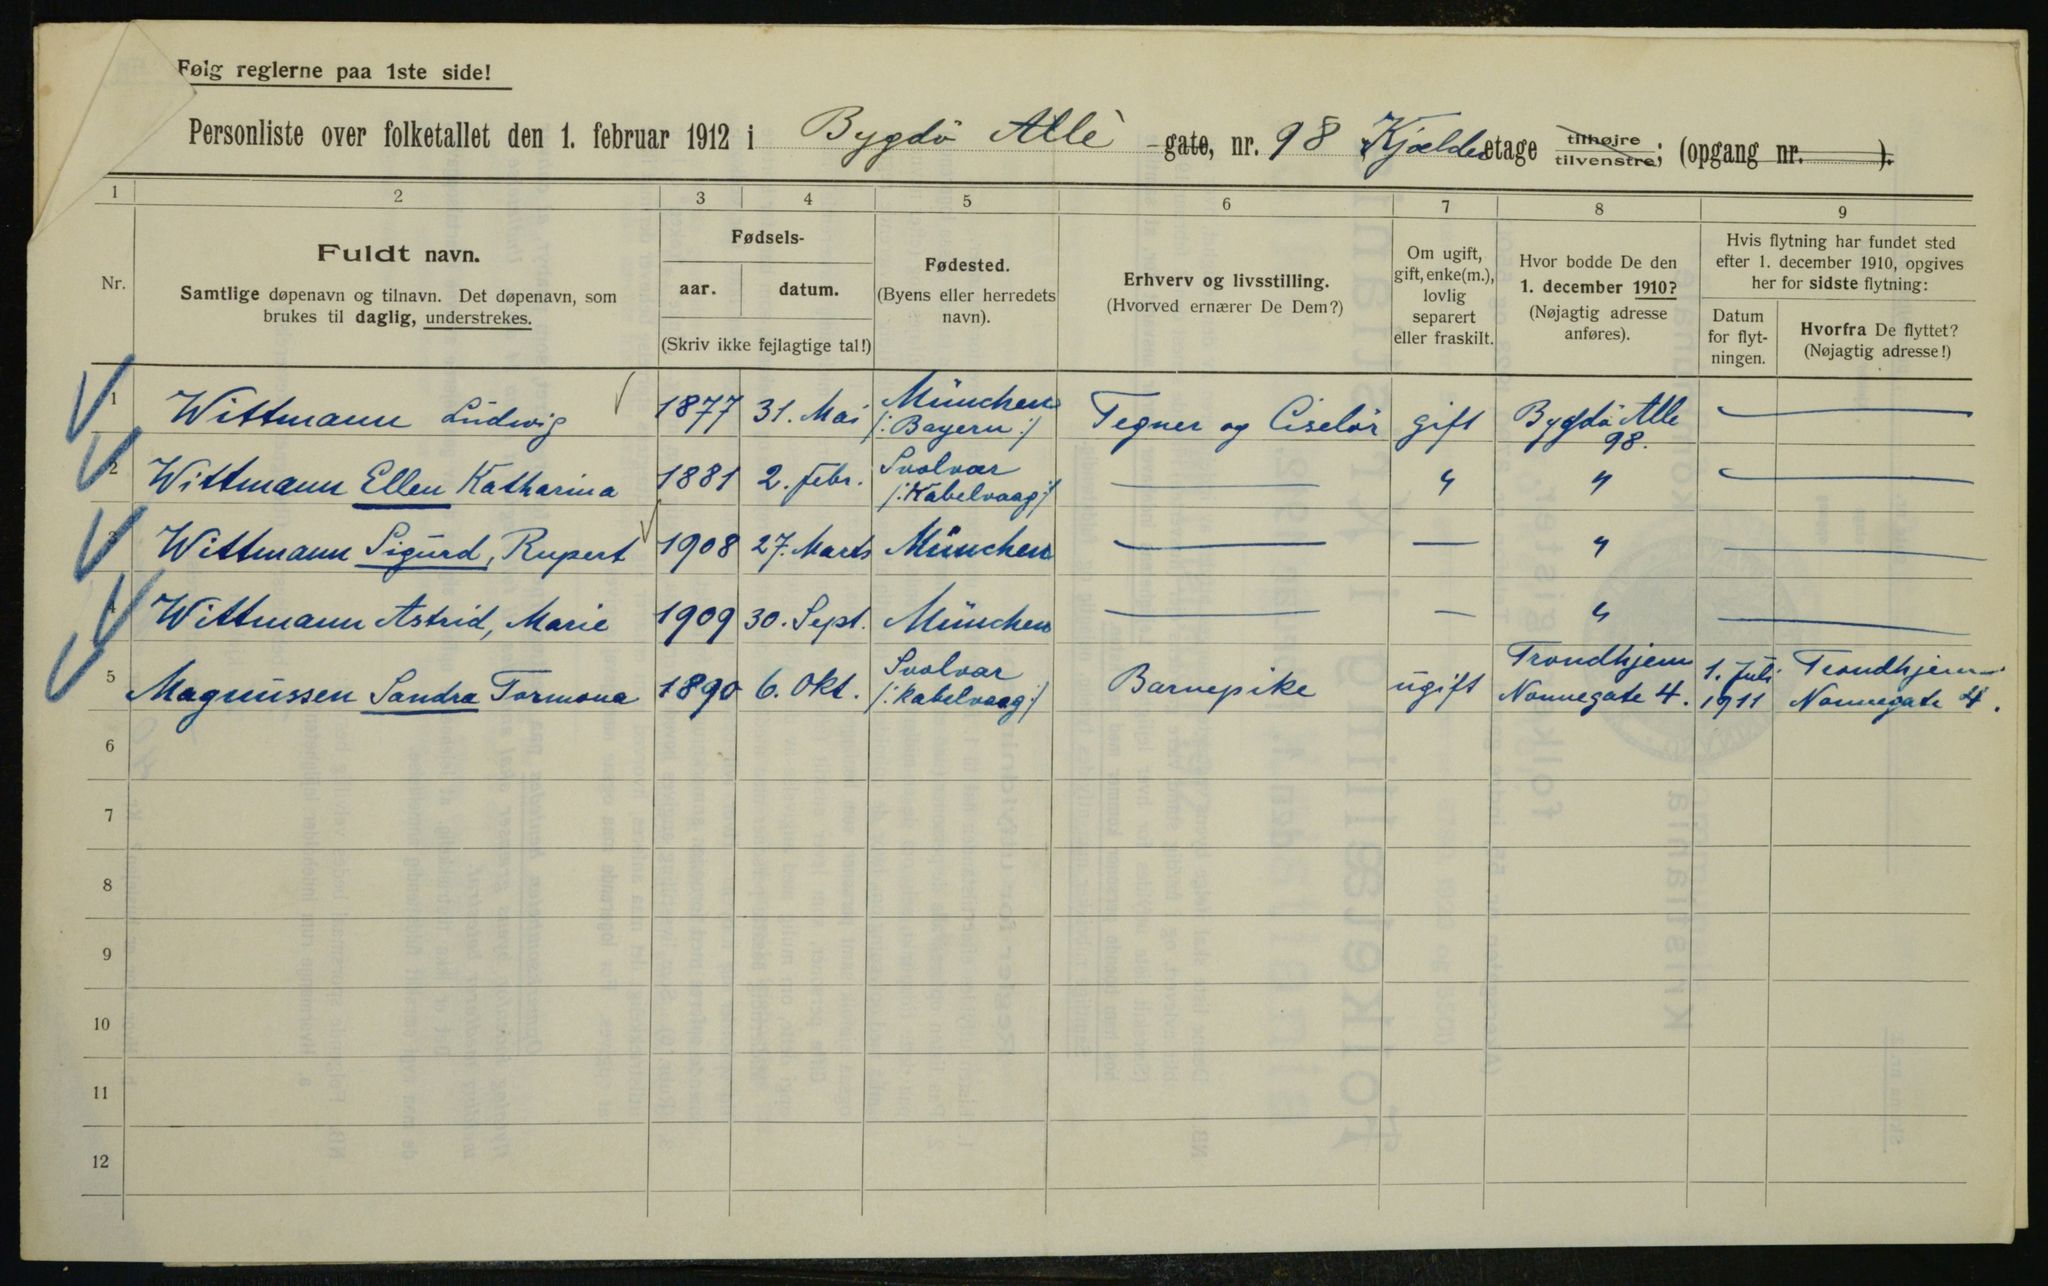 Følg reglerne paa 1ste side!
Personliste over folketallet den 1. februar 1912 i Bygdö Allè gate, nr. 98 Kjælder etage tilhøjre tilvenstre; (opgang nr. ).
1 2 3 4 5 6 7 8 9
Nr.
Fuldt navn.
Samtlige døpenavn og tilnavn. Det døpenavn, som
brukes til daglig, understrekes.
Fødsels-
aar. datum.
(Skriv ikke fejlagtige tal!)
Fødested.
(Byens eller herredets
navn).
Erhverv og livsstilling.
(Hvorved ernærer De Dem?)
Om ugift,
gift, enke(m.),
lovlig
separert
eller fraskilt.
Hvor bodde De den
1. december 1910?
(Nøjagtig adresse
anføres).
Hvis flytning har fundet sted
efter 1. december 1910, opgives
her for sidste flytning:
Datum
for flyt-
ningen.
Hvorfra De flyttet?
(Nøjagtig adresse!)
1 Wittmann Ludwig 1877 31. Mai München /: Bayern :/ Tegner og Ciselör gift Bygdö Alle 98.
2 Wittmann Ellen Katharina 1881 2. febr. Svolvær /: Kabelvaag :/ — " "
3 Wittmann Sigurd, Rupert 1908 27. Marts München — — "
4 Wittmann Astrid, Marie 1909 30. Sept. München — — "
5 Magnussen Sandra Tormona 1890 6. Okt. Svolvær /: Kabelvaag :/ Barnepike ugift Trondhjem Nonnegate 4. 1. Juli 1911 Trondhjem Nonnegate 4.
6
7
8
9
10
11
12